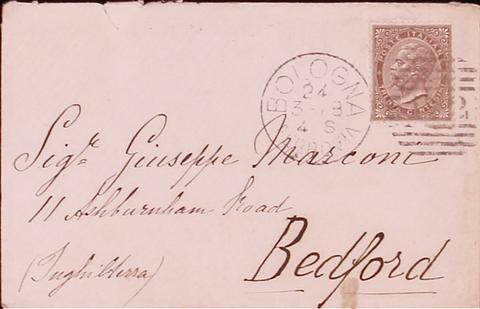 BOLOGNA
24
3 - 8
4 S
POSTE ITALIANE
Sigr. Giuseppe Marconi
11 Ashburnham Road
Bedford
(Inghilterra)